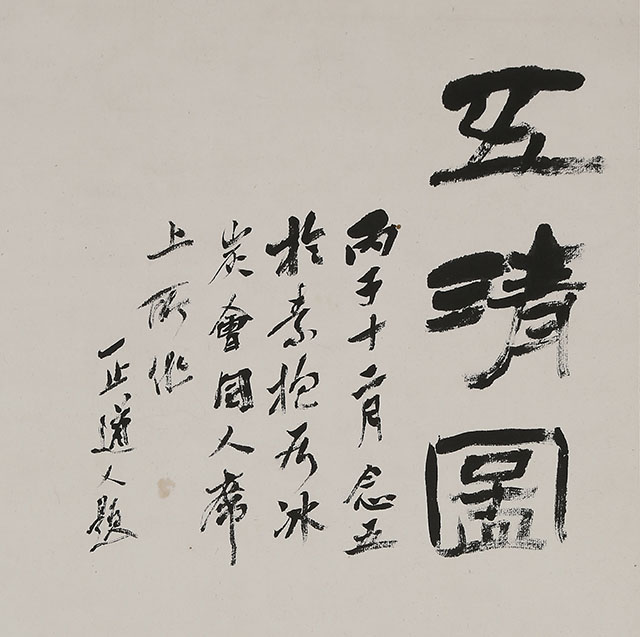 五清圖
丙子十二月念五
於素抱居冰
炭會同人席
上所作
一止道人題